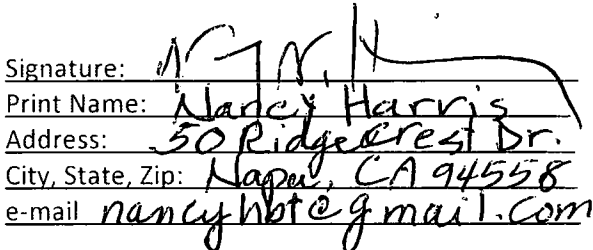 Signature:
Print Name: Nancy Harris
Address: 50 Ridgecrest Dr.
City, State, Zip: Napa, CA 94558
e-mail nancyhbt@gmail.com